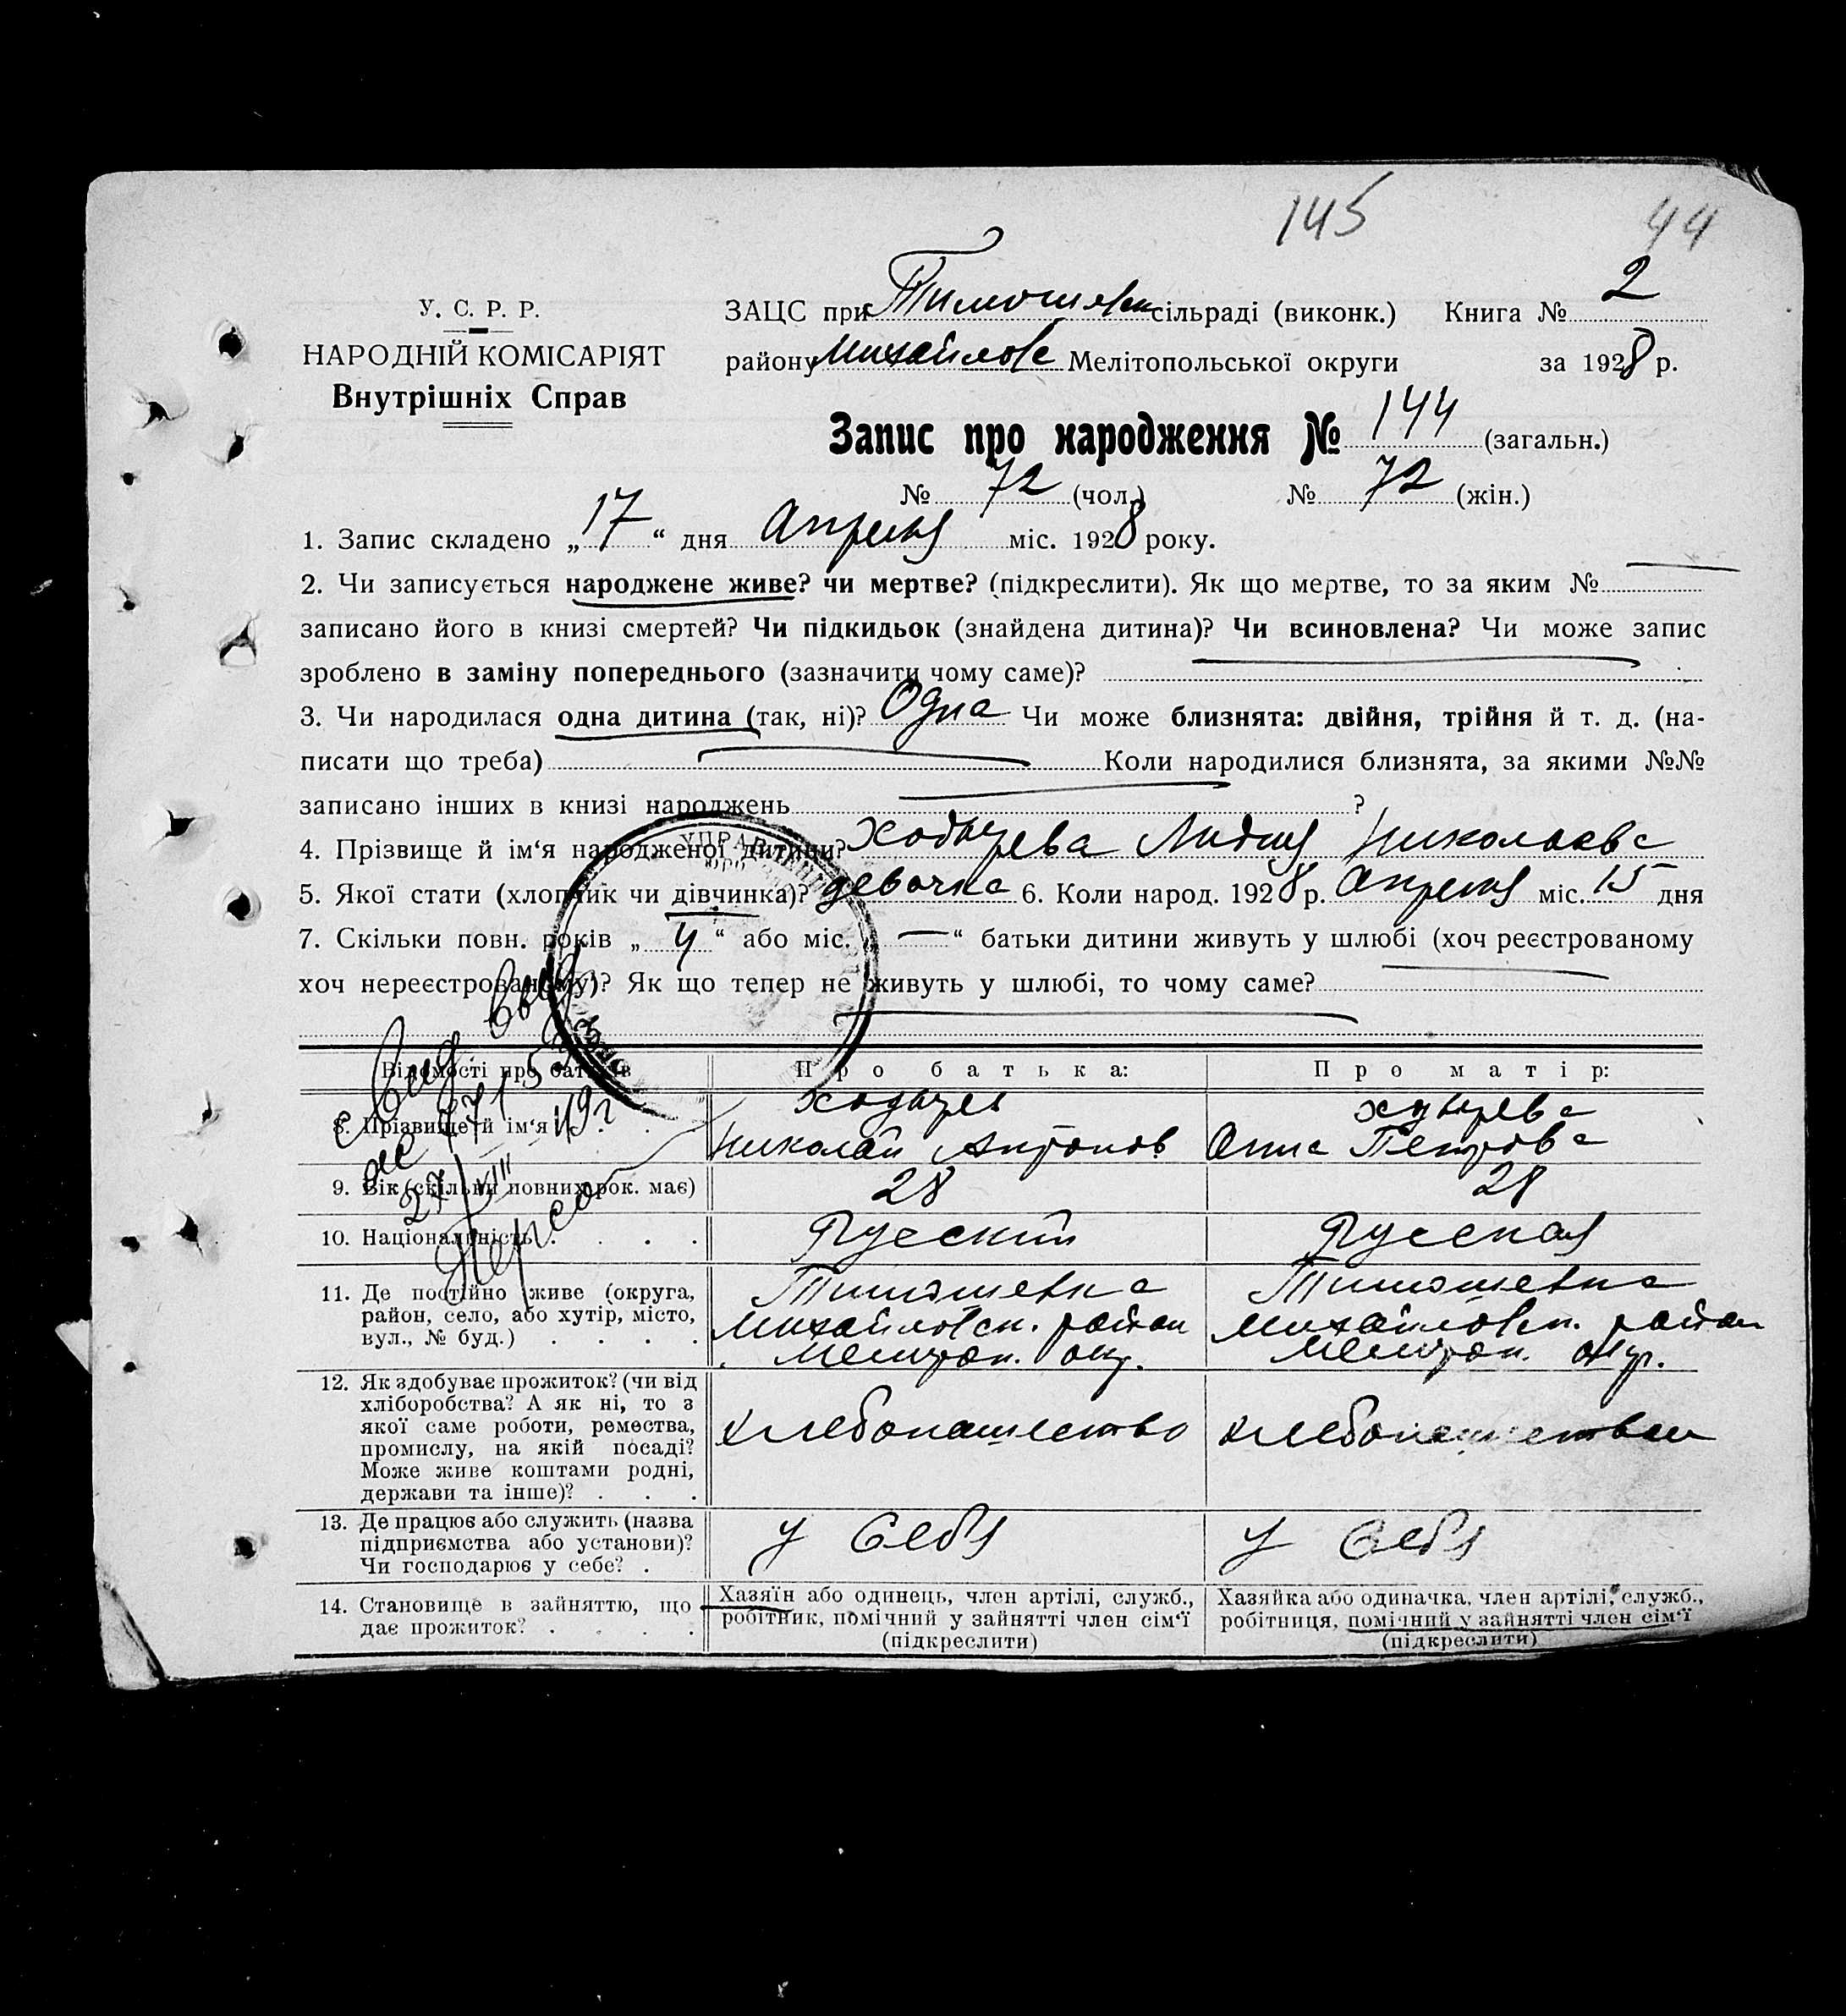 145 44
У. С. Р. Р.
НАРОДНІЙ КОМІСАРІЯТ
Внутрішніх Справ
ЗАЦС при Тимошевск сільраді (виконк.) Книга № 2
району Михайловс Мелітопольської округи за 1928 р.
Запис про народження № 144 (загальн.)
№ 72 (чол.) № 72 (жін.)
1. Запис складено „17“ дня Апреля міс. 1928 року.
2. Чи записується народжене живе? чи мертве? (підкреслити). Як що мертве, то за яким №
записано його в книзі смертей? Чи підкидьок (знайдена дитина)? Чи всиновлена? Чи може запис
зроблено в заміну попереднього (зазначити чому саме)?
3. Чи народилася одна дитина (так, ні)? Одна Чи може близнята: двійня, трійня й т. д. (на-
писати що треба) Коли народилися близнята, за якими №№
записано інших в книзі народжень ?
4. Прізвище й ім‘я народженої дитини? Лидия Николаевс
5. Якої стати (хлопчик чи дівчинка)? девочка 6. Коли народ. 1928 р. Апреля міс. 15 дня
7. Скільки повн. років „4“ або міс. „—“ батьки дитини живуть у шлюбі (хоч реєстрованому
хоч нереєстрованому)? Як що тепер не живуть у шлюбі, то чому саме?
УПРАВЛЕНИ
Відомості про батьків Про батька: Про матір:
8. Прізвище й ім‘я
Николай Антонов Анна Петрова
9. Вік (скільки повних рок. має) 28 28
10. Національність Русский Русская
11. Де постійно живе (округа,
район, село, або хутір, місто,
вул., № буд.)
Тимошевка Тимошевка
Михайловск. район Михайловск. район
Мелитоп. окр. Мелитоп. окр.
12. Як здобуває прожиток? (чи від
хліборобства? А як ні, то з
якої саме роботи, ремества,
промислу, на якій посаді?
Може живе коштами родні,
держави та інше)?
хлебопашество
13. Де працює або служить (назва
підприємства або установи)?
Чи господарює у себе?
У себя У себя
14. Становище в зайняттю, що
дає прожиток?
Хазяїн або одинець, член артілі, служб.,
робітник, помічний у зайнятті член сім‘ї
(підкреслити)
Хазяйка або одиначка, член артілі, служб.,
робітниця, помічний у зайнятті член сім‘ї
(підкреслити)